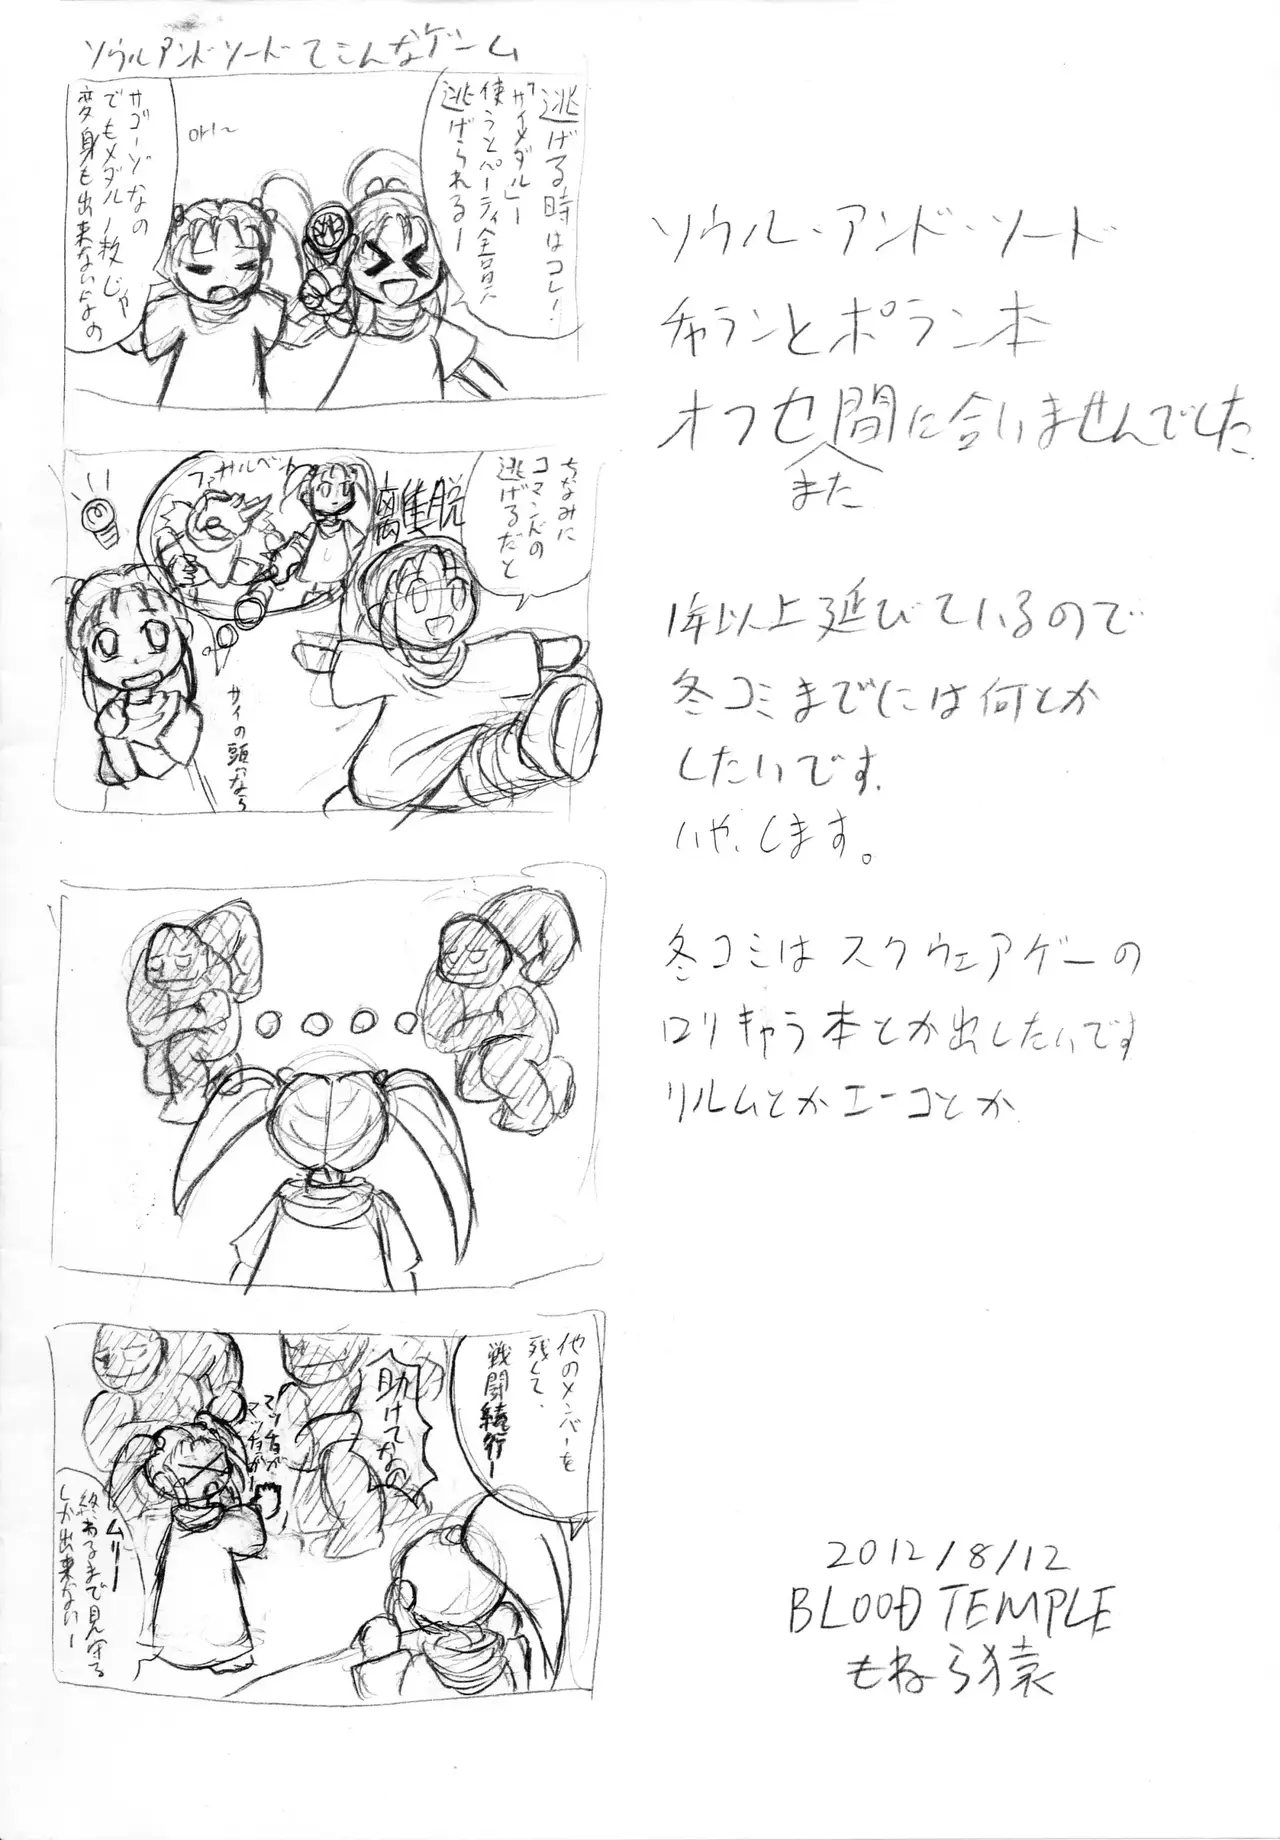 ソウルアンドソードてこんなゲーム
逃げる時はコレ!
「サイメダル」ー
使うとパーティ全員
逃げられるー
オリ〜
サゴーゾなの
でもメダル1枚じゃ
変身も出来ないよなの
ちなみに
コマンドの
逃げるだと
離脱
ファイナルベント
サイの頭なら
他のメンバーを
残して、
戦闘続行ー
助けてなの
マッチョが
マッチョがー
ムリー
終わるまで見守る
しか出来ないー
ソウル・アンド・ソード
チャランとポラン本
オフセ間に合いませんでした
また
1年以上延びているので
冬コミまでには何とか
したいです.
いや、します。
冬コミはスクウェアゲーの
ロリキャラ本とか出したいです
リルムとかエーコとか
2012/8/12
BLOOD TEMPLE
もねら猿